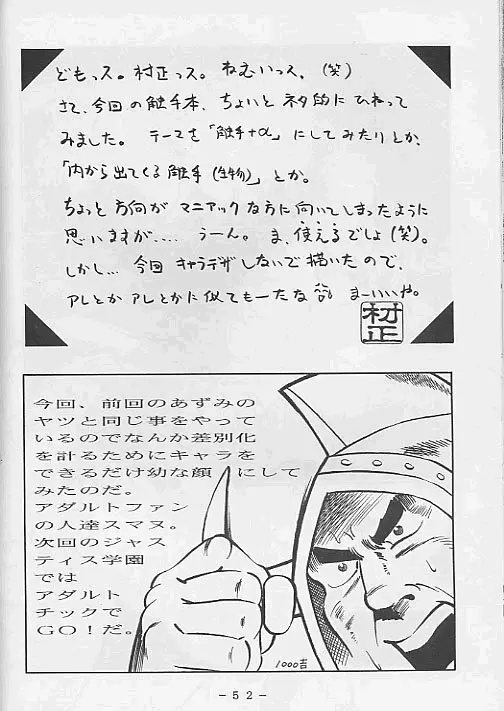 どもっス。村正っス。ねむいっス、(笑)
さて、今回の触手本、ちょいとネタ的にひねって
みました。テーマを「触手+α」にしてみたりとか、
「内から出てくる触手(生物)」とか。
ちょっと方向がマニアックな方に向いてしまったように
思いますが.... うーん。ま、使えるでしょ(笑)。
しかし... 今回キャラデザしないで描いたので、
アレとかアレとかに似てもーたな まーいいや。
村正
今回、前回のあずみの
ヤツと同じ事をやって
いるのでなんか差別化
を計るためにキャラを
できるだけ幼な顔にして
みたのだ。
アダルトファン
の人達スマヌ。
次回のジャス
ティス学園
では
アダルト
チックで
GO!だ。
1000吉
-52-